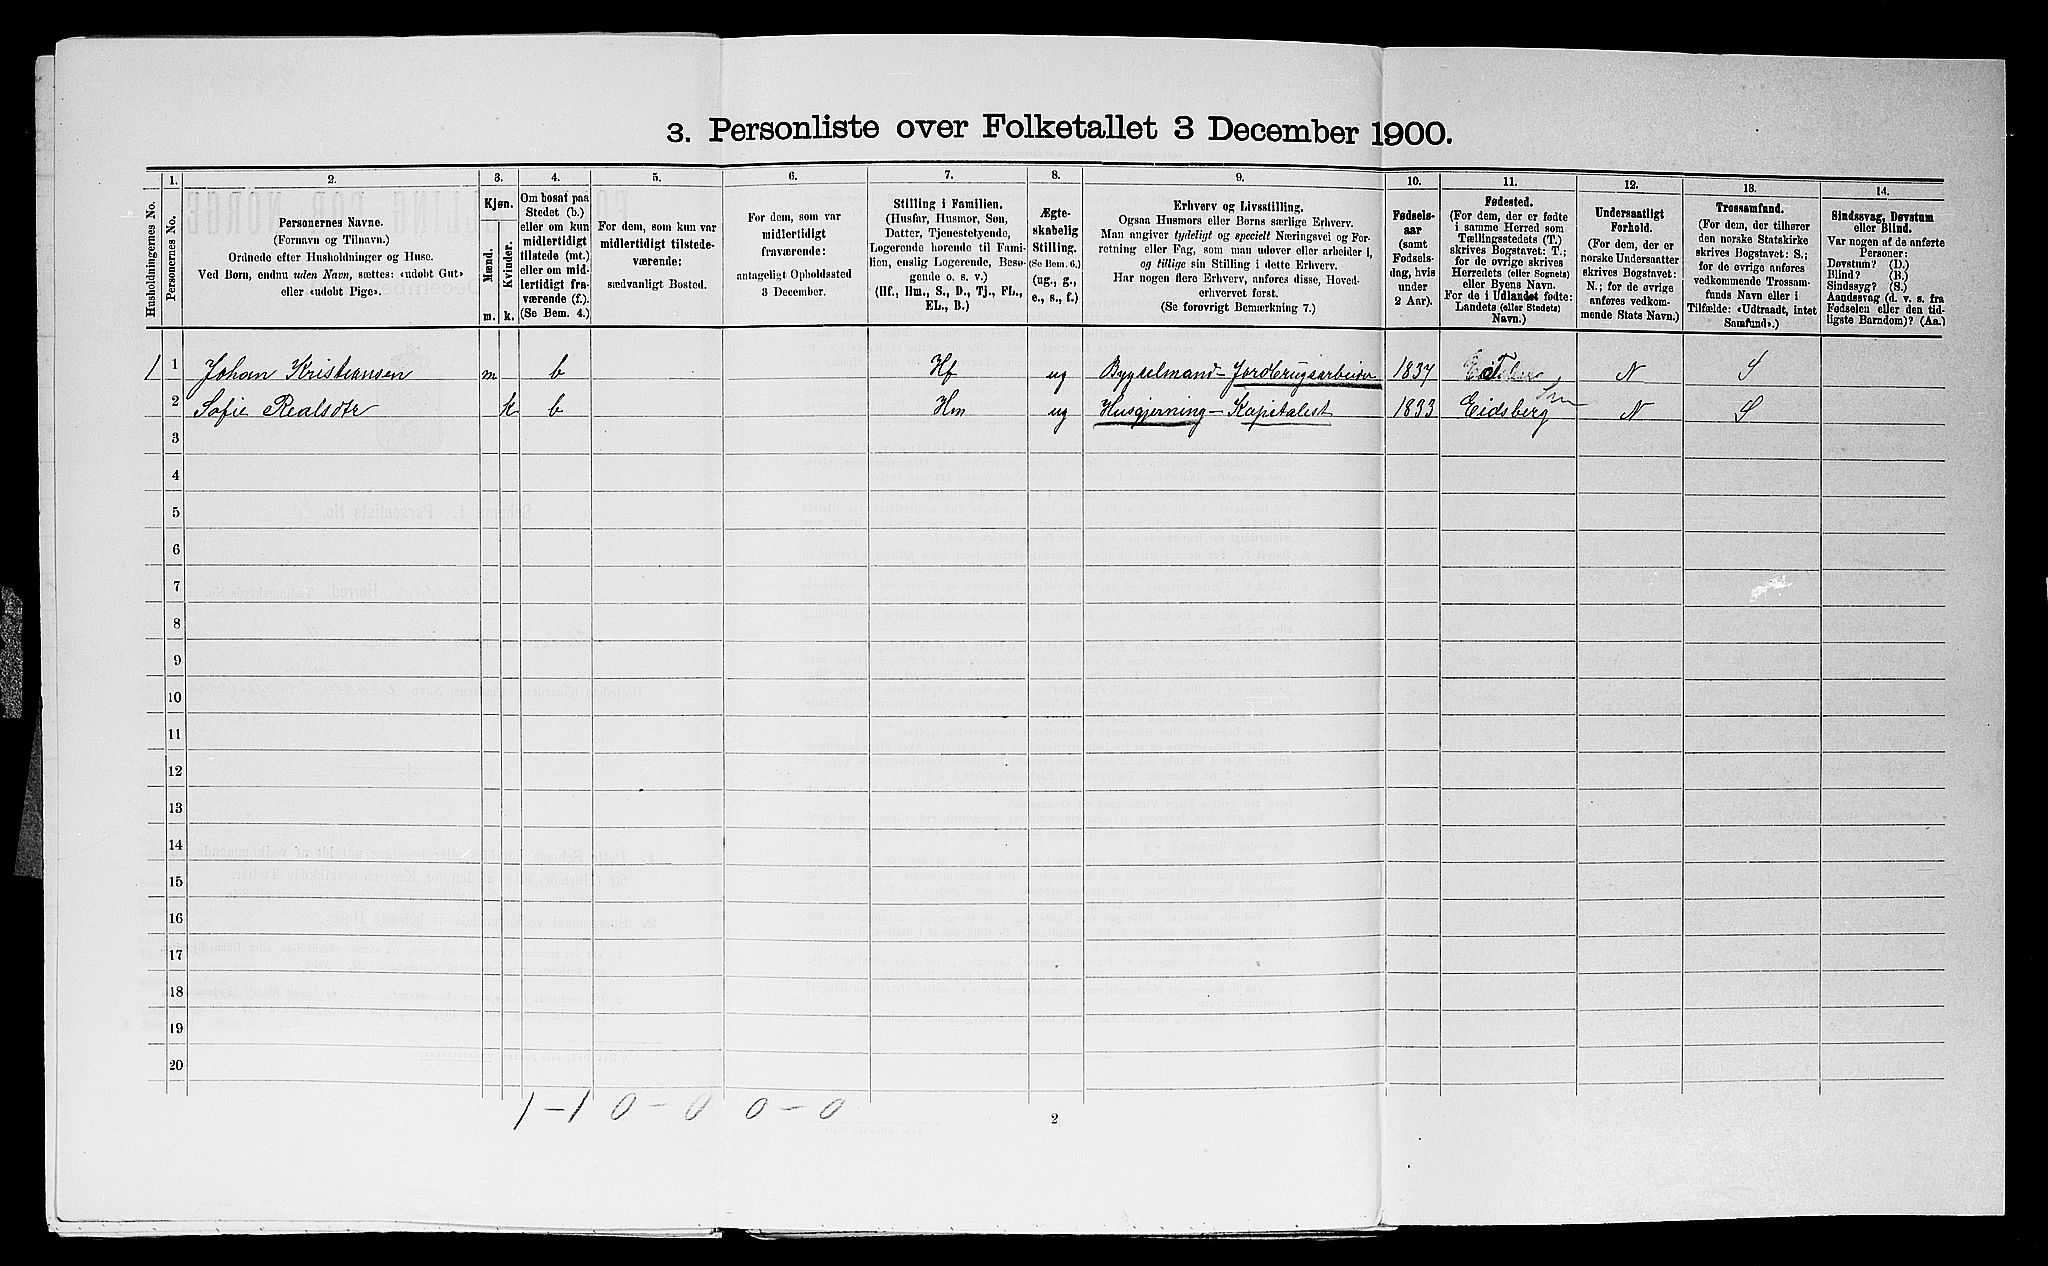 3. Personliste over Folketallet 3 December 1900.
1. 2. 3. 4. 5. 6. 7. 8. 9. 10. 11. 12. 13. 14.
Husholdningernes No.
Personernes No.
Personernes Navne.
(Fornavn og Tilnavn.)
Ordnede efter Husholdninger og Huse.
Ved Børn, endnu uden Navn, sættes: «udøbt Gut»
eller «udøbt Pige».
Kjøn.
Mænd.
Kvinder.
m. k.
Om bosat paa
Stedet (b.)
eller om kun
midlertidigt
tilstede (mt.)
eller om mid-
lertidigt fra-
værende (f.).
(Se Bem. 4.)
For dem, som kun var
midlertidigt tilstede-
værende:
sædvanligt Bosted.
For dem, som var
midlertidigt
fraværende:
antageligt Opholdssted
3 December.
Stilling i Familien.
(Husfar, Husmor, Søn,
Datter, Tjenestetyende,
Logerende hørende til Fami-
lien, enslig Logerende, Besø-
gende o. s. v.)
(Hf., Hm., S., D., Tj., FL.,
EL., B.)
Ægte-
skabelig
Stilling.
(Se Bem. 6.)
(ug., g.,
e., s., f.)
Erhverv og Livsstilling.
Ogsaa Husmors eller Børns særlige Erhverv.
Man angiver tydeligt og specielt Næringsvei og For-
retning eller Fag, som man udøver eller arbeider i,
og tillige sin Stilling i dette Erhverv.
Har nogen flere Erhverv, anføres disse, Hoved-
erhvervet først.
(Se forøvrigt Bemærkning 7.)
Fødsels-
aar
(samt
Fødsels-
dag, hvis
under
2 Aar).
Fødested.
(For dem, der er fødte
i samme Herred som
Tællingsstedets (T.)
skrives Bogstavet: T.;
for de øvrige skrives
Herredets (eller Sognets)
eller Byens Navn.
For de i Udlandet fødte:
Landets (eller Stedets)
Navn.)
Undersaatligt
Forhold.
(For dem, der er
norske Undersaatter
skrives Bogstavet:
N.; for de øvrige
anføres vedkom-
mende Stats Navn.)
Trossamfund.
(For dem, der tilhører
den norske Statskirke
skrives Bogstavet: S.;
for de øvrige anføres
vedkommende Trossam-
funds Navn eller i
Tilfælde: «Udtraadt, intet
Samfund».)
Sindssvag, Døvstum
eller Blind.
Var nogen af de anførte
Personer:
Døvstum? (D.)
Blind? (B.)
Sindssyg? (S.)
Aandssvag (d. v. s. fra
Fødselen eller den tid-
ligste Barndom)? (Aa.)
1 1 Johan Kristiansen m b Hf ug Bygselmand - Jordbrugsarbeider 1837 T N S
2 Sofie Realsdtr k b Hm ug Husgjerning - Kapitalist 1833 Eidsberg N S
3
4
5
6
7
8
9
10
11
12
13
14
15
16
17
18
19
20
1 - 1 0 - 0 0 - 0
2